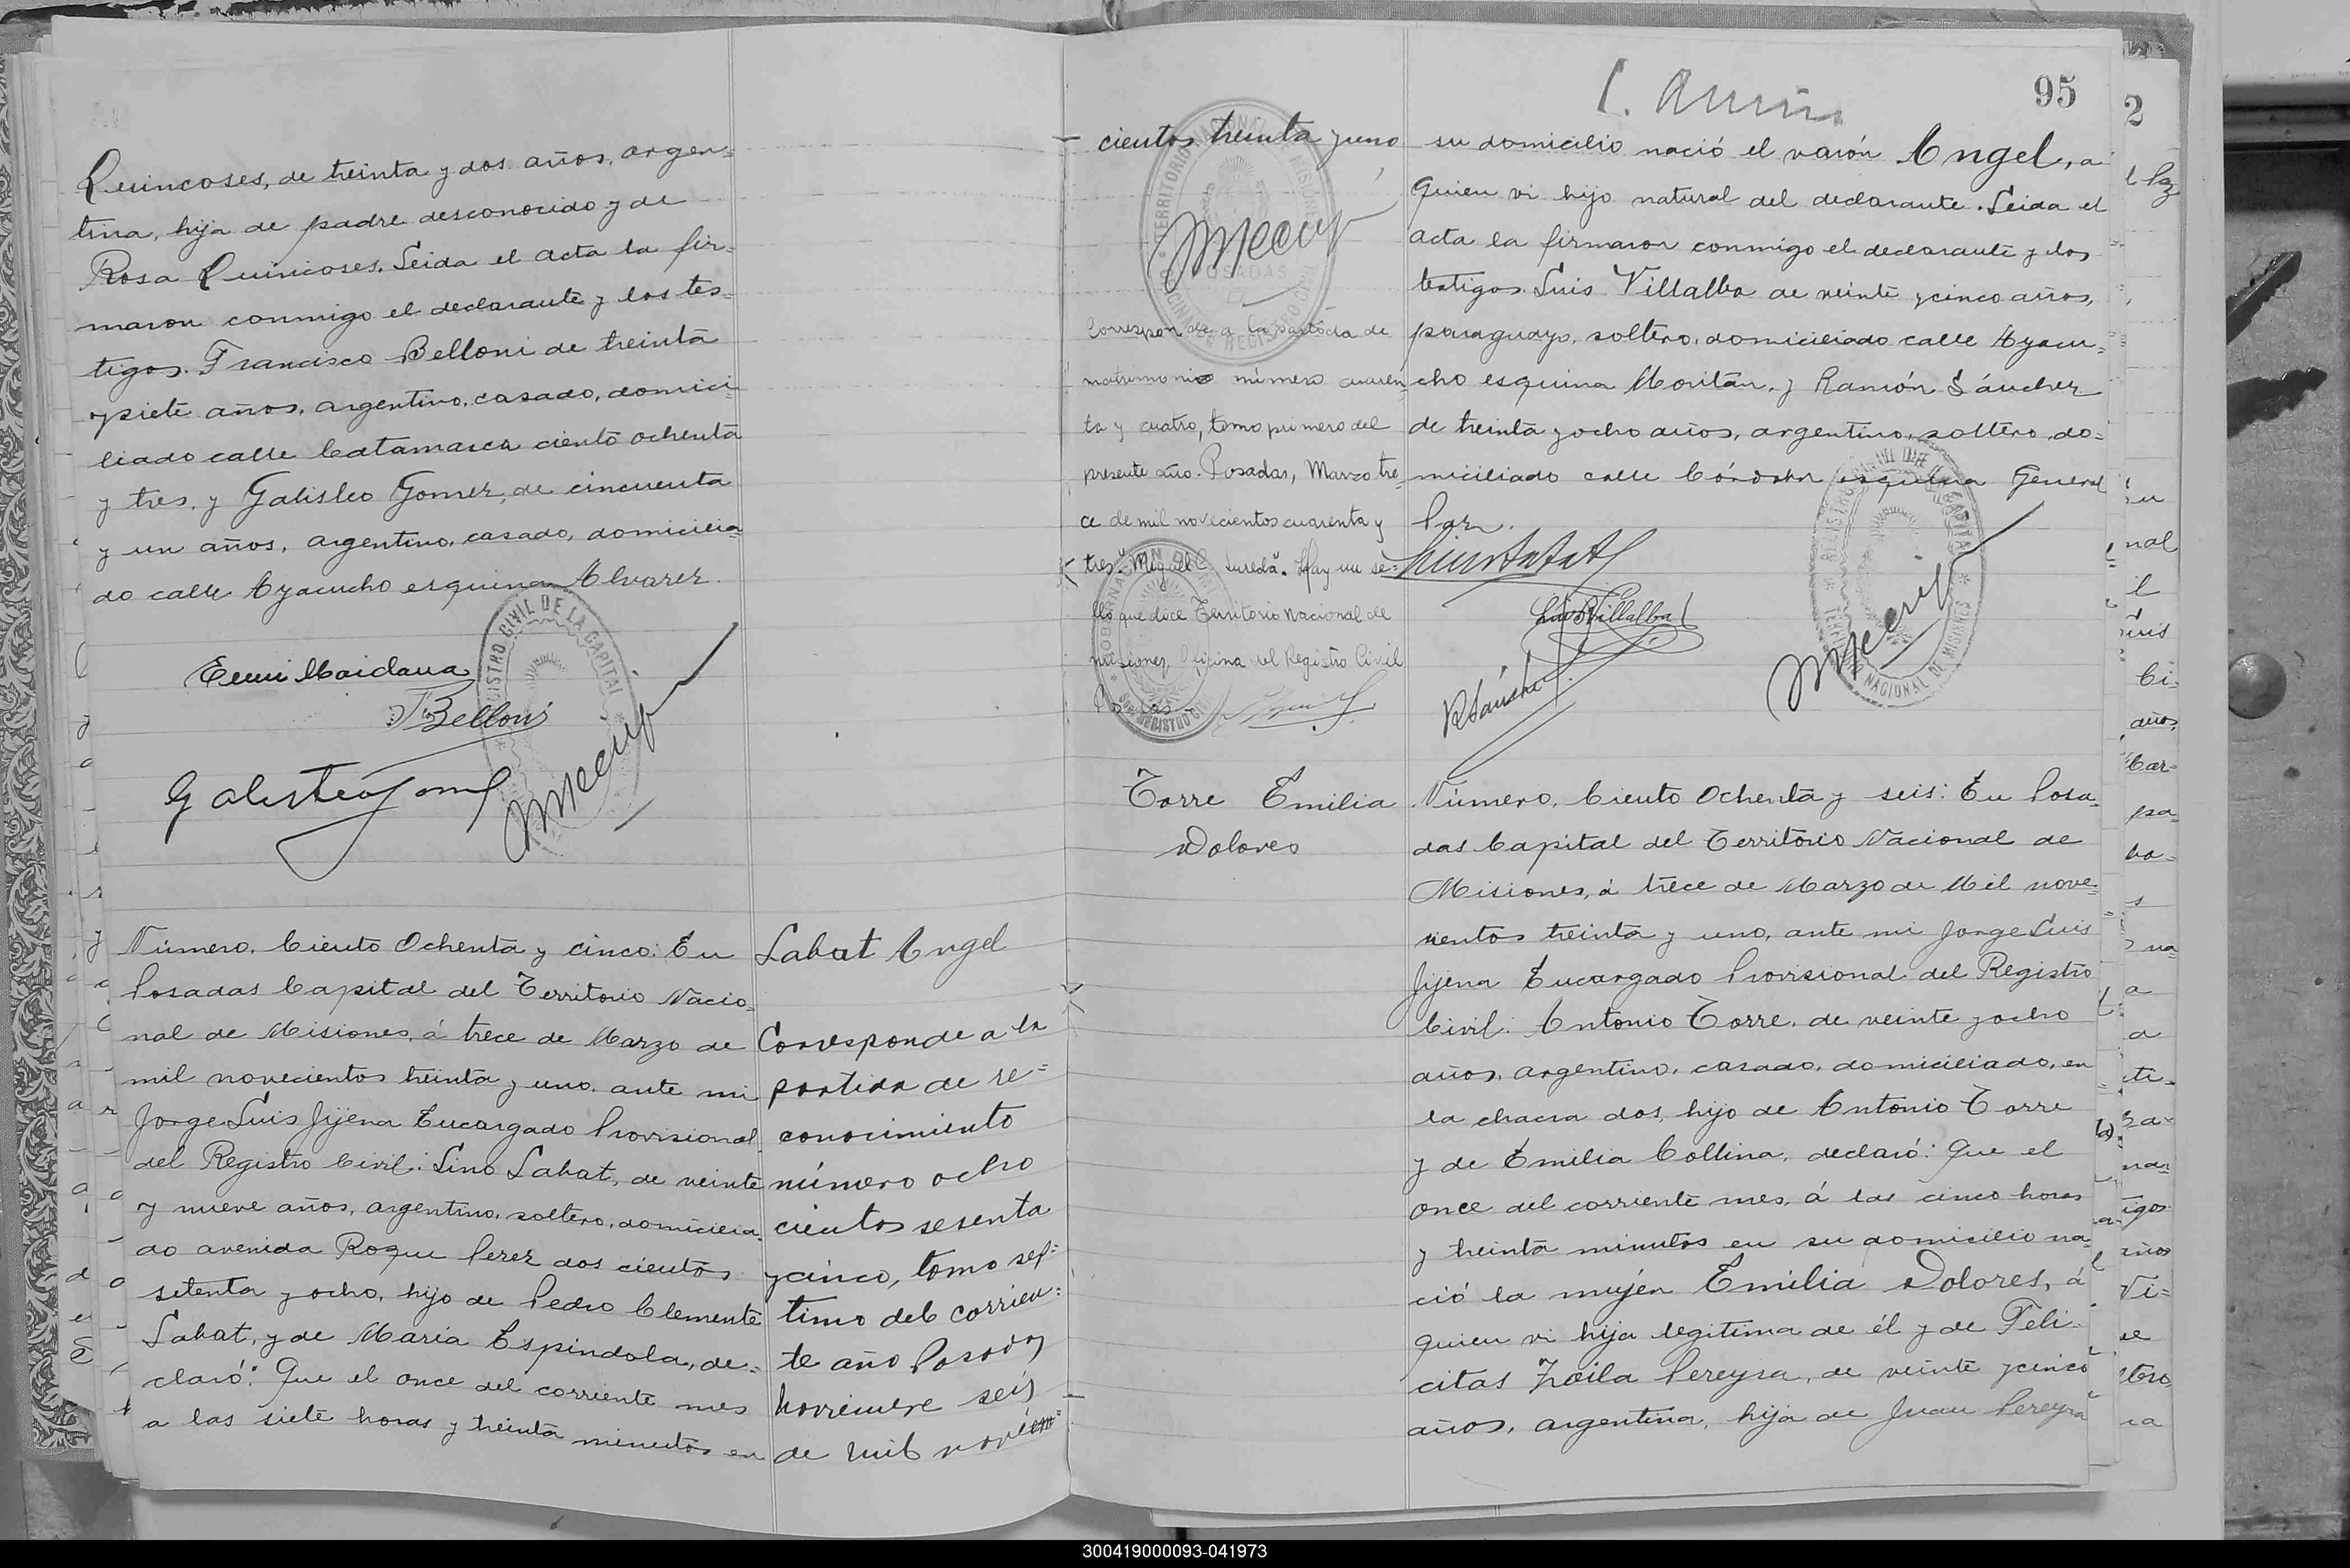 Quincoses, de treinta y dos años, argen=
tina, hija de padre desconocido y de
Rosa Quincoses. Leida el acta la fir=
maron conmigo el declarante y los tes=
tigos. Francisco Belloni de treinta
y siete años, argentino, casado, domici=
liado calle Catamarca ciento ochenta
y tres, y Galisteo Gomez, de cincuenta
y un años, argentino, casado, domicilia=
do calle Ayacucho esquina Alvarez.
REGISTRO CIVIL DE LA CAPITAL
Maidana
Belloni
Número, Ciento Ochenta y cinco: En
Posadas Capital del Territorio Nacio=
nal de Misiones, á trece de Marzo de
mil novecientos treinta y uno, ante mi
Jorge Luis Jijena Encargado Provisional
del Registro Civil: Lino Labat, de veinte
y nueve años, argentino, soltero, domicilia=
do avenida Roque Perez dos cientos
setenta y ocho, hijo de Pedro Clemente
Labat, y de Maria Espindola, de=
claró: Que el once del corriente mes
a las siete horas y treinta minutos en
Labat Angel
Corresponde a la
partida de re=
conocimiento
número ocho
cientos sesenta
y cinco, tomo sep=
timo del corrien=
te año Posadas
Noviembre seis
de mil novecien=
cientos treinta y uno
TERRITORIO NACIONAL MISIONES
POSADAS
OFICINA DE REGISTRO CIVIL
Corresponde a la partida de
matrimonio número cuaren
ta y cuatro, tomo primero del
presente año. Posadas, Marzo tre
ce de mil novecientos cuarenta y
tres. Miguel C. Sureda. Hay un se=
llo que dice Territorio Nacional de
Misiones, Oficina del Registro Civil
Posadas
95
2
su domicilio nació el varón Angel, a
quien vi hijo natural del declarante. Leida el
acta la firmaron conmigo el declarante y los
testigos Luis Villalba de veinte y cinco años,
paraguayo, soltero, domiciliado calle Ayacu=
cho esquina Moritán, y Ramón Sánchez
de treinta y ocho años, argentino, soltero, do=
miciliado calle Córdoba esquina General
Paz.
Luis Villalba
R Sánchez
REGISTRO CIVIL DE LA CAPITAL
TERRITORIO NACIONAL DE MISIONES
Torre Emilia
Dolores
Número, Ciento Ochenta y seis: En Posa=
das Capital del Territorio Nacional de
Misiones, á trece de Marzo de Mil nove=
cientos treinta y uno, ante mi Jorge Luis
Jijena Encargado Provisional del Registro
Civil: Antonio Torre, de veinte y ocho
años, argentino, casado, domiciliado, en
la chacra dos, hijo de Antonio Torre
y de Emilia Collina, declaró: Que el
once del corriente mes, á las cinco horas
y treinta minutos en su domicilio na=
ció la mujer Emilia Dolores, á
quien vi hija legitima de él y de Feli=
citas Zoila Pereyra, de veinte y cinco
años, argentina, hija de Juan Pereyra
300419000093-041973